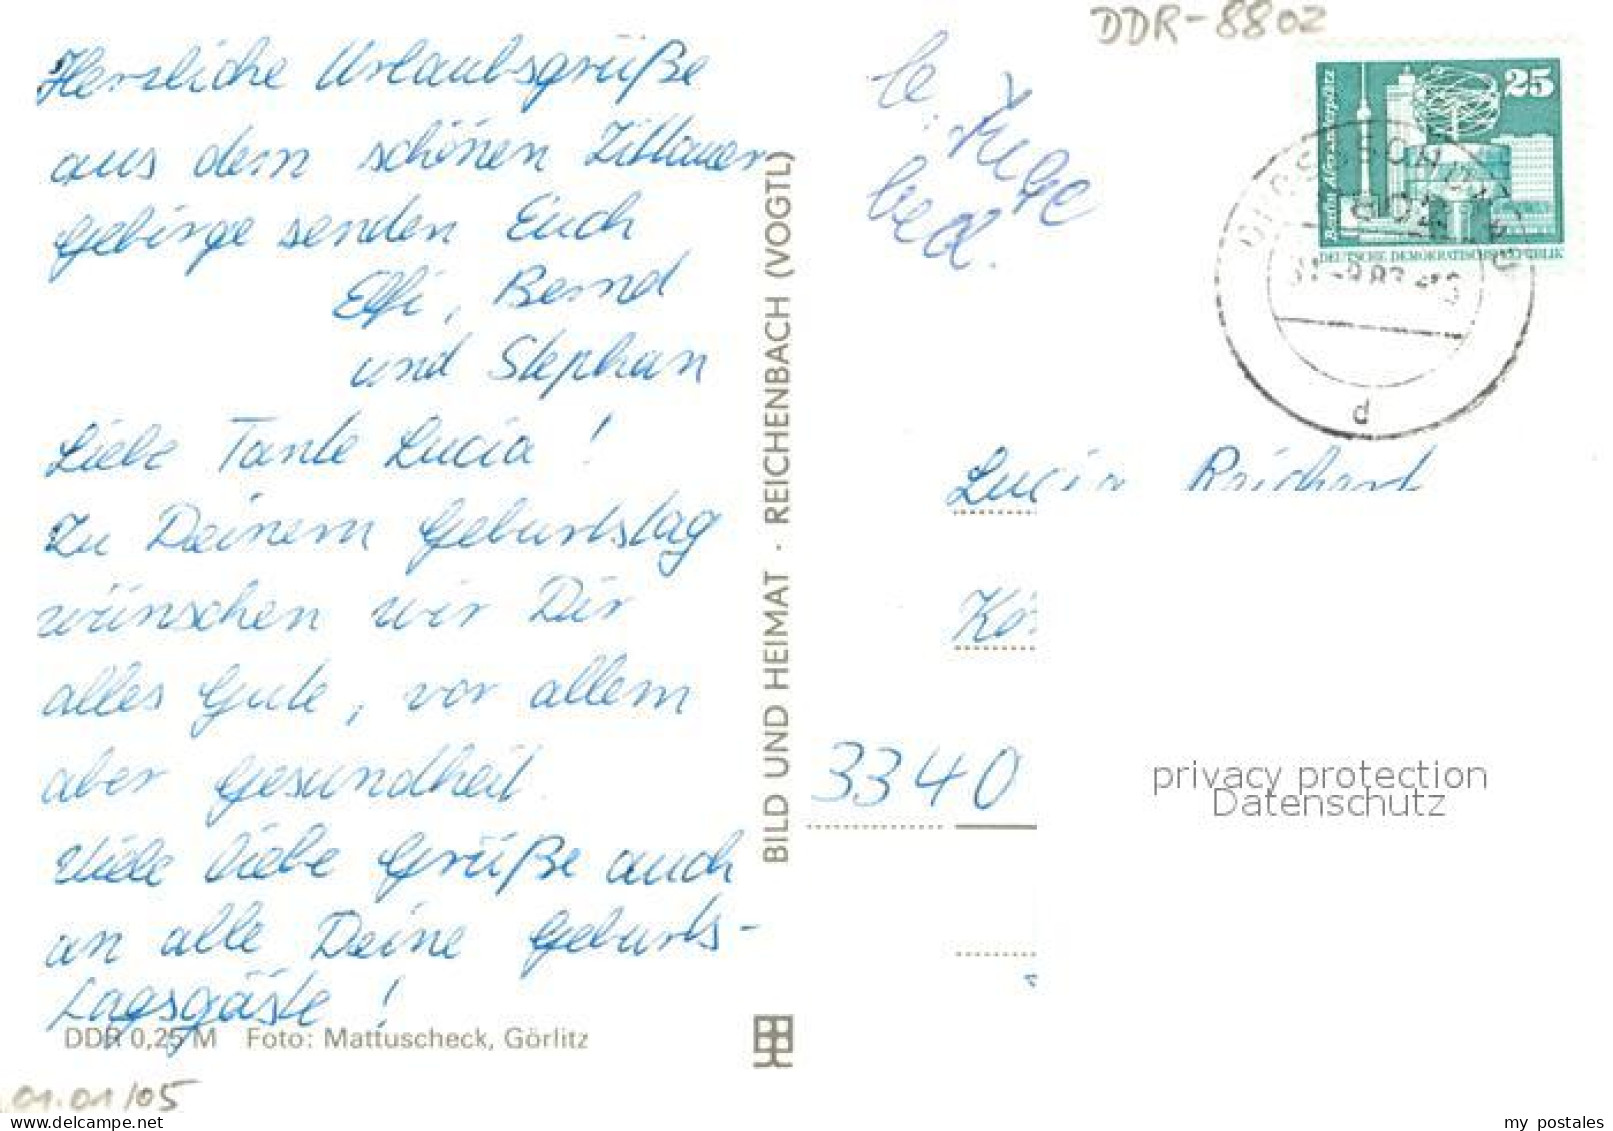 DDR-8802
Herzliche Urlaubsgrüße
aus dem schönen Zittauer
Gebirge senden Euch
Elfi, Bernd
und Stephan
Liebe Tante Lucia!
Zu Deinem Geburtstag
wünschen wir Dir
alles Gute, vor allem
aber Gesundheit.
Viele liebe Grüße auch
an alle Deine Geburts-
tagsgäste!
DDR 0,25 M Foto: Mattuscheck, Görlitz
01.01/05
BILD UND HEIMAT · REICHENBACH (VOGTL)
25
Berlin, Alexanderplatz
DEUTSCHE DEMOKRATISCHE REPUBLIK
8802
d
Lucia Reichert
3340
privacy protection
Datenschutz
delcampe.net
my_postales